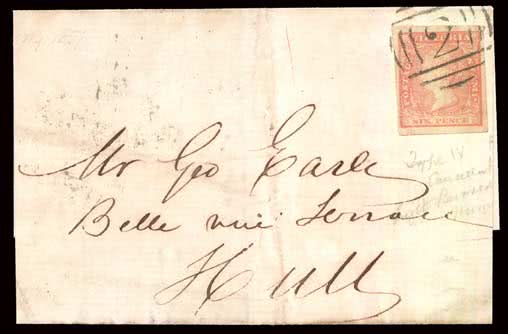 VICTORIA
2
SIX PENCE
Mr Geo Earle
Belle vue Terrace
Hull
Type IV